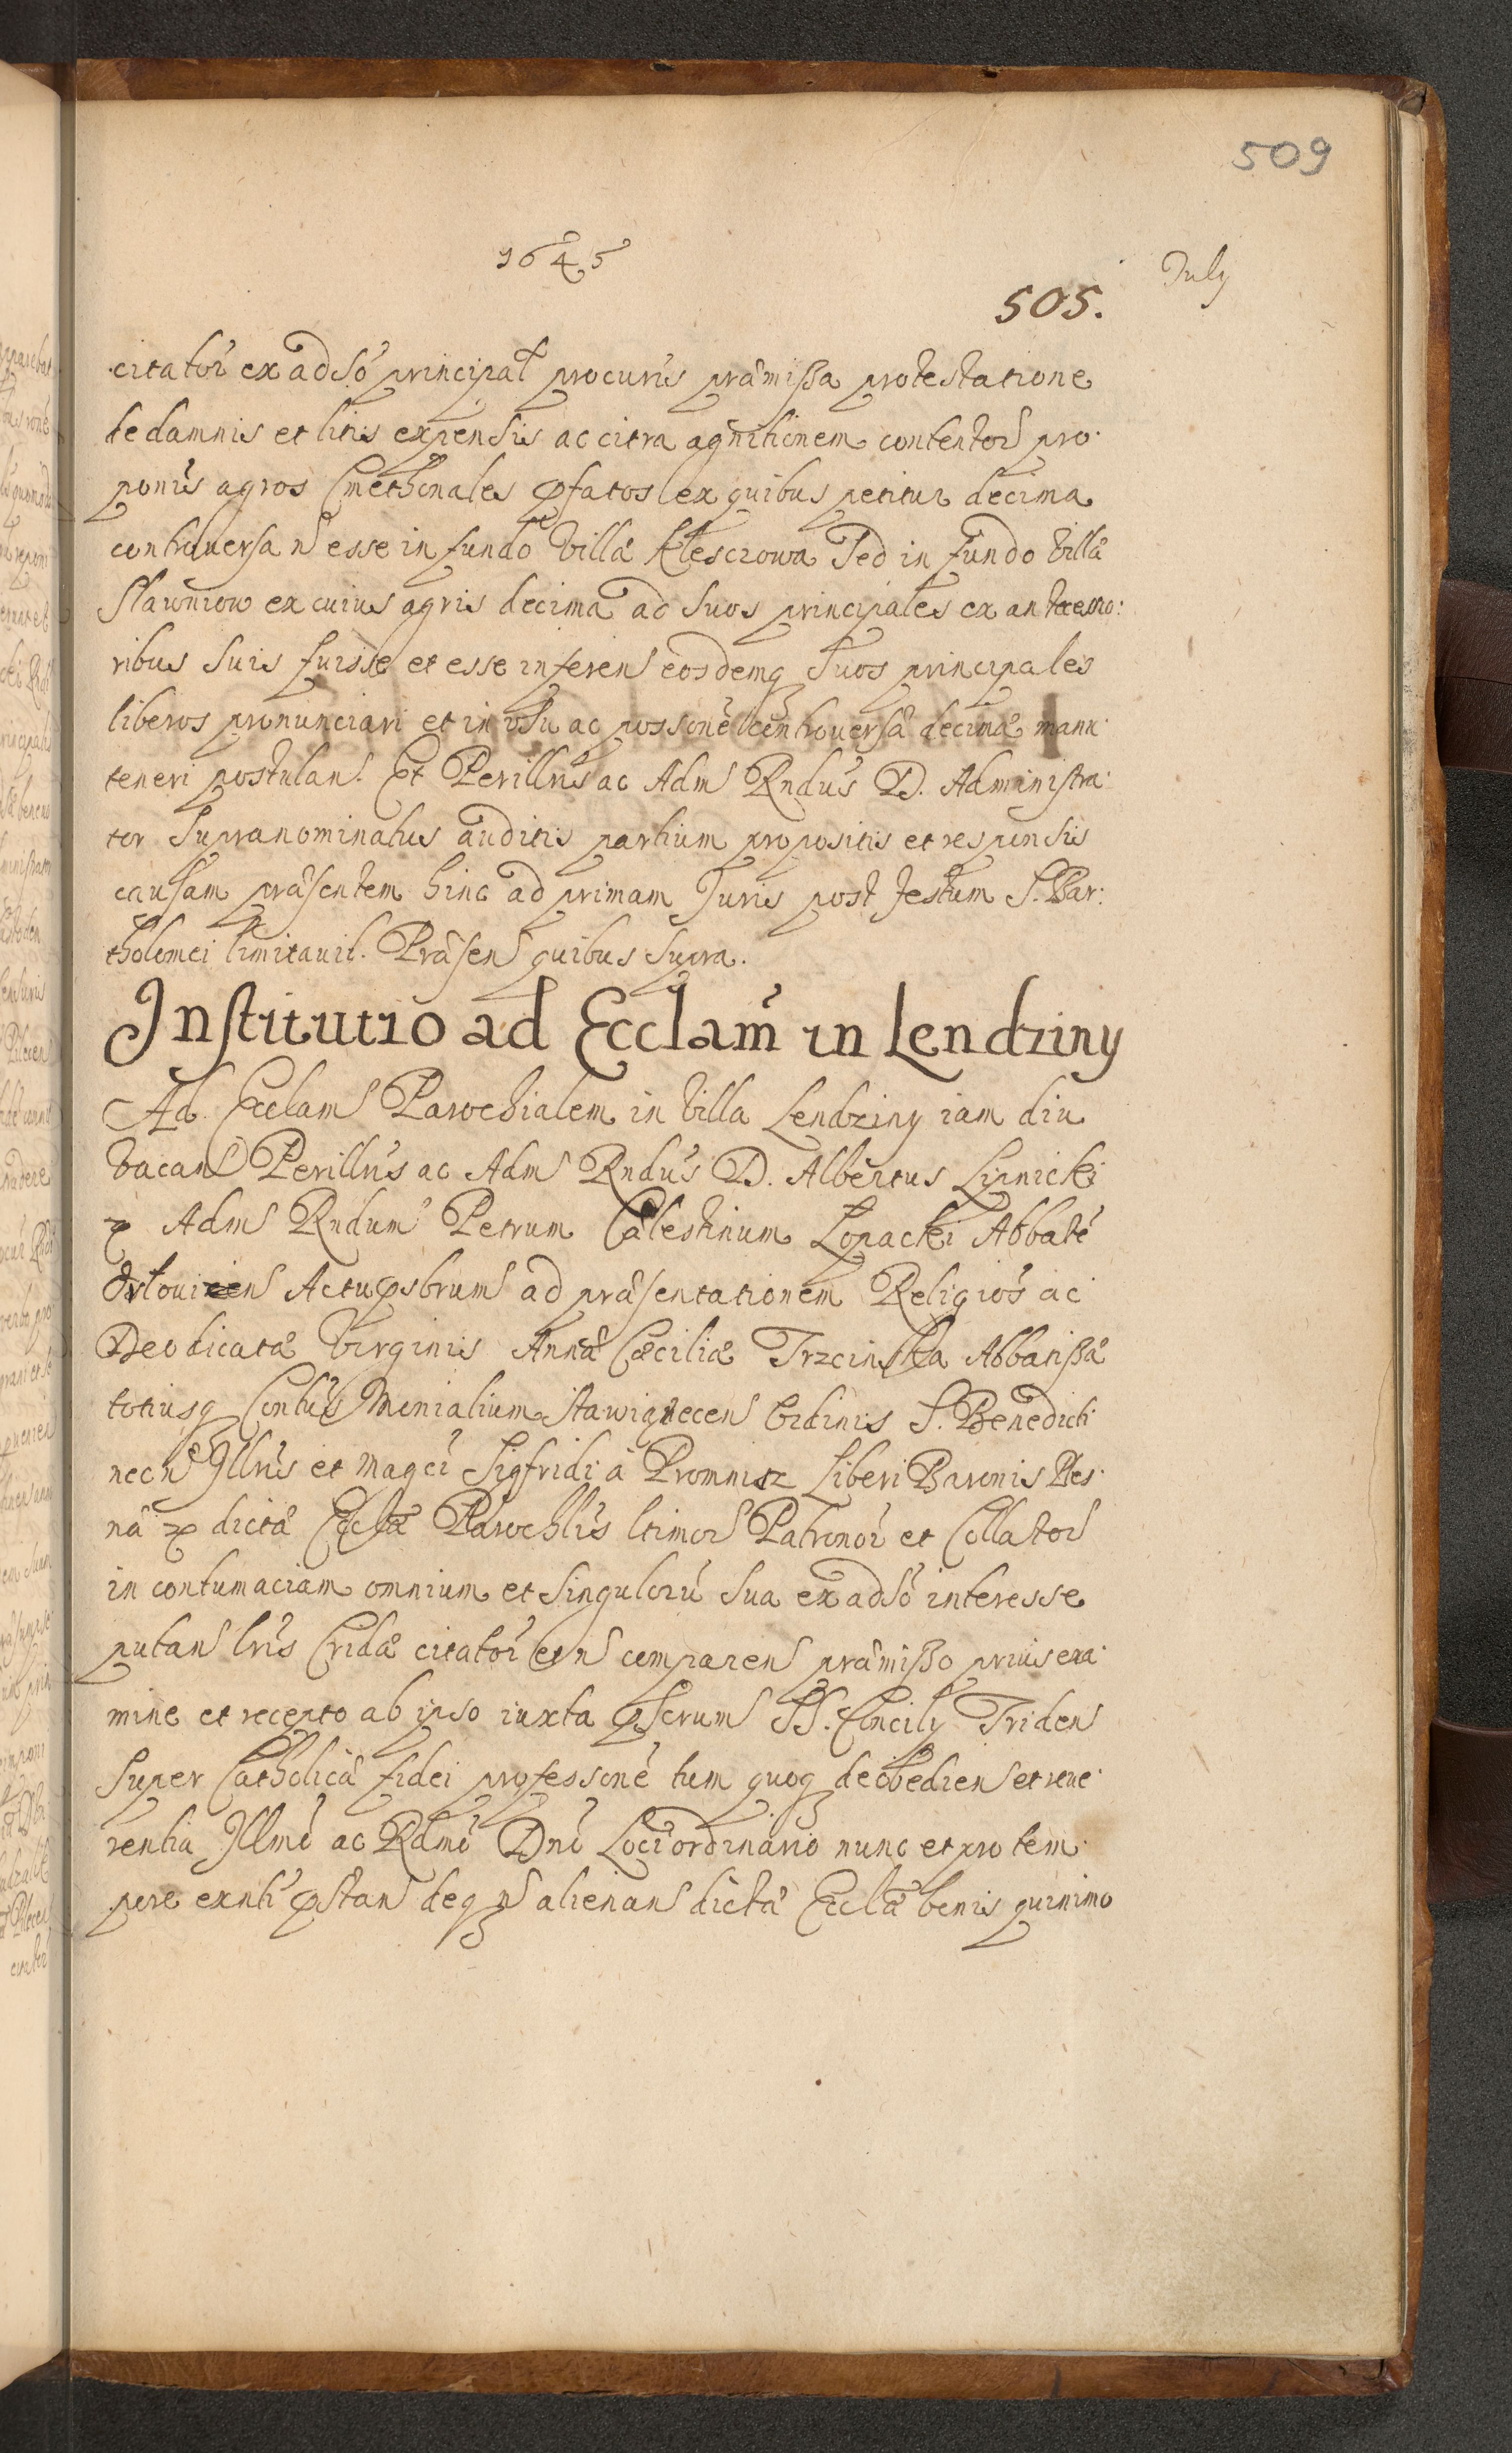 509
1645
July
505.
citator ex adso principal procuris præmissa protestatione
de damnis et litis expensis ac citra agnitionem contentor pro
ponis agros Cmethonales pfatos ex quibus petitur decima
controuersa n esse in fundo villæ Klesczowa Sed in fundo villæ
Slawniow ex cuius agris decima ad suos principales ex antecesso:
ribus suis fuisse et esse inferens eosdemq suos principales
liberos pronunciari et in usu ac possone controuersæ decimæ manu
teneri postulans. Et Perillris ac Adm Rndus D. Administra
tor supranominatus auditis partium propositis et responsis
causam præsentem hinc ad primam Juris post festum S. Bar:
tholomei limitauit. Præsen quibus supra.
Institutio ad Ecclam in Lendziny
Ad Ecclam Parochialem in villa Lendziny iam diu
vacan Perillris ac Adm Rndus D. Albertus Lipnicki
Adm Rndum Petrum Cælestinum Łopacki Abbate
Orlouien Actu psbrum ad præsentationem Religios ac
Deo dicatæ Virginis Annæ Cæciliæ Trzcinska Abbatissæ
totiusq Contus Monialium Stawiqrecen Ordinis S. Benedicti
necn Illris et Magci Sigfridi à Promnicz Liberi Baronis Ples
næ dictæ Ecclæ Parochlis ltimor Patronor et Collator
in contumaciam omnium et singulorū sua ex adso interesse
putan lris Cridæ citator et n comparen præmisso prius exa
mine et recepto ab ipso iuxta pscrum SS. Concily Triden
super Catholicâ fidei professone tum quoq de obedien et reue
rentia Illmo ac Rdmo Dno Loci ordinario nunc et pro tem
pore exnti pstan deq n alienan dictæ Ecclæ bonis quinimo